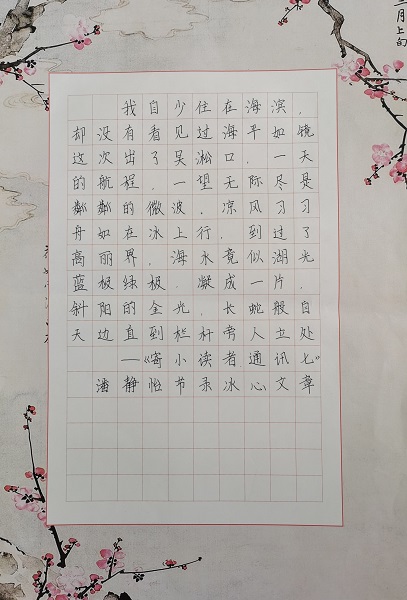 我自少住在海滨，
却没有看见过海平如镜
这次出了吴淞口，一天
的航程，一望无际尽是
粼粼的微波，凉风习习
舟如在冰上行，到过了
高丽界，海水竟似湖光，
蓝极绿极，凝成一片，
斜阳的金光，长蛇般自
天边直到栏杆旁人立处
——《寄小读者通讯七》
潘静怡节录冰心文章
二月上旬